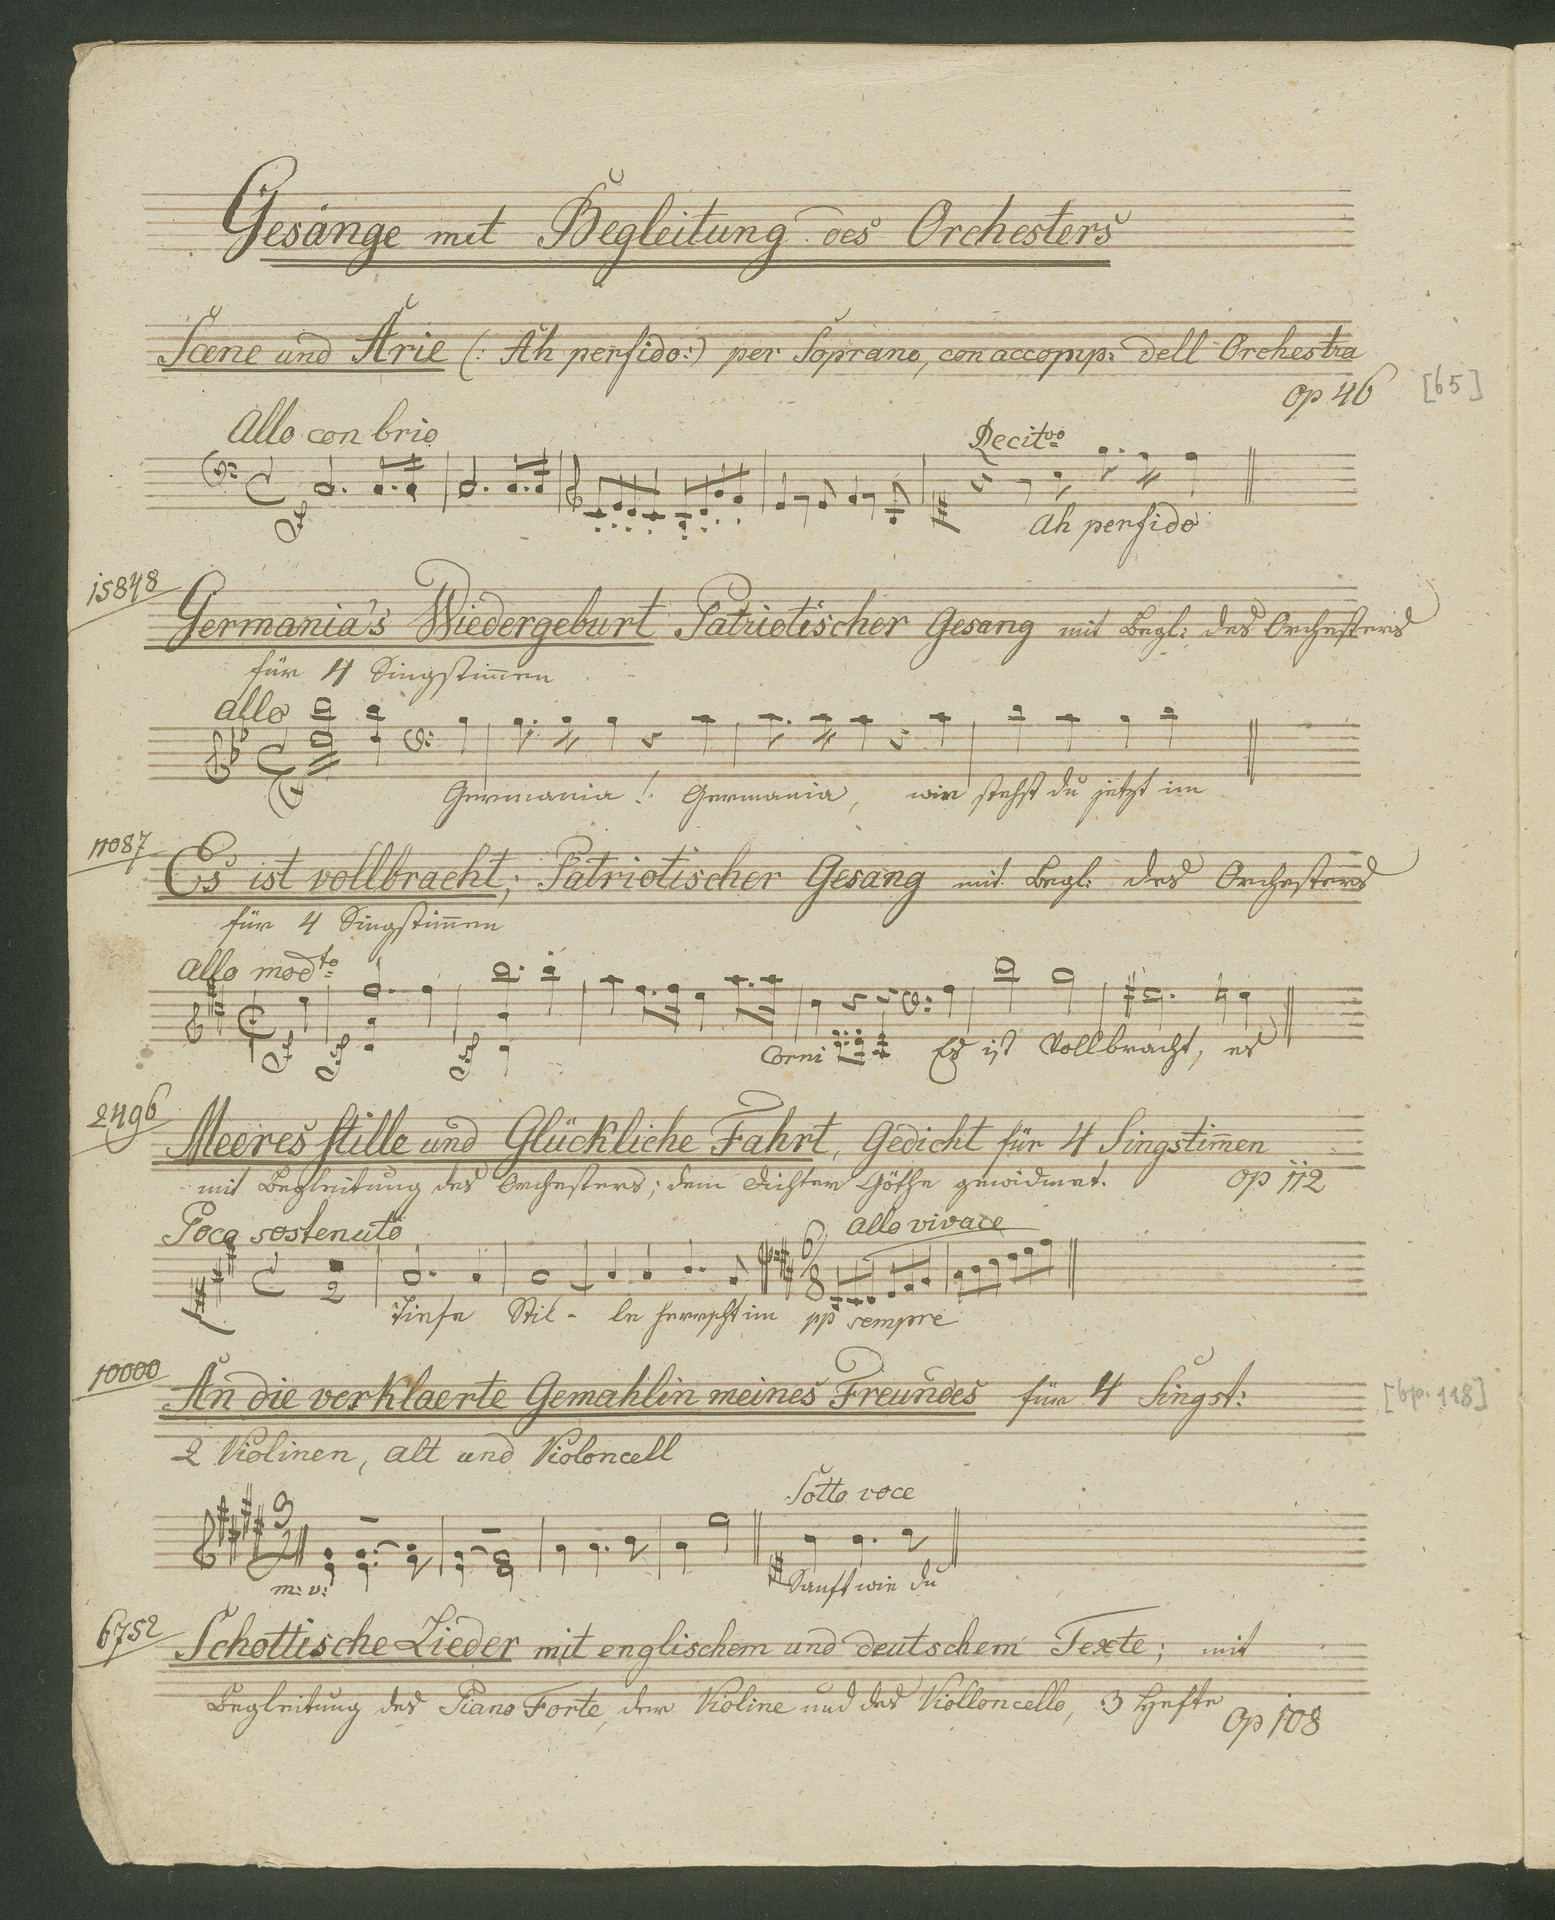 Gesänge mit Begleitung des Orchesters
Scene und Arie (: Ah perfido:) per Soprano, con accomp: dell Orchestra
op 46 [65]
Allo con brio
Recitvo
ff
Ah perfido
15848
Germania's Wiedergeburt Patriotischer Gesang mit Begl: des Orchesters
für 4 Singstim̅en
allo
Germania! Germania, wie stehst du jetzt im
11087
Es ist vollbracht; Patriotischer Gesang mit Begl: des Orchesters
für 4 Singstim̅en
allo modto
Corni Es ist Vollbracht, es
2496
Meeres stille und Glückliche Fahrt, Gedicht für 4 Singstim̅en
mit Begleitung des Orchesters; dem Dichter Göthe gewidmet. op 112
Poco sostenuto
allo vivace
6
8
2
Tiefe Stil - le herrscht im pp sempre
10000
An die verklaerte Gemahlin meines Freundes für 4 Singst: [op. 118]
2 Violinen, alt und Violoncell
Sotto voce
3
m: v: Sanft wie du
6752
Schottische Lieder mit englischem und deutschem Texte; mit
Begleitung des Piano Forte, der Violine und des Violloncello, 3 Hefte
Op 108